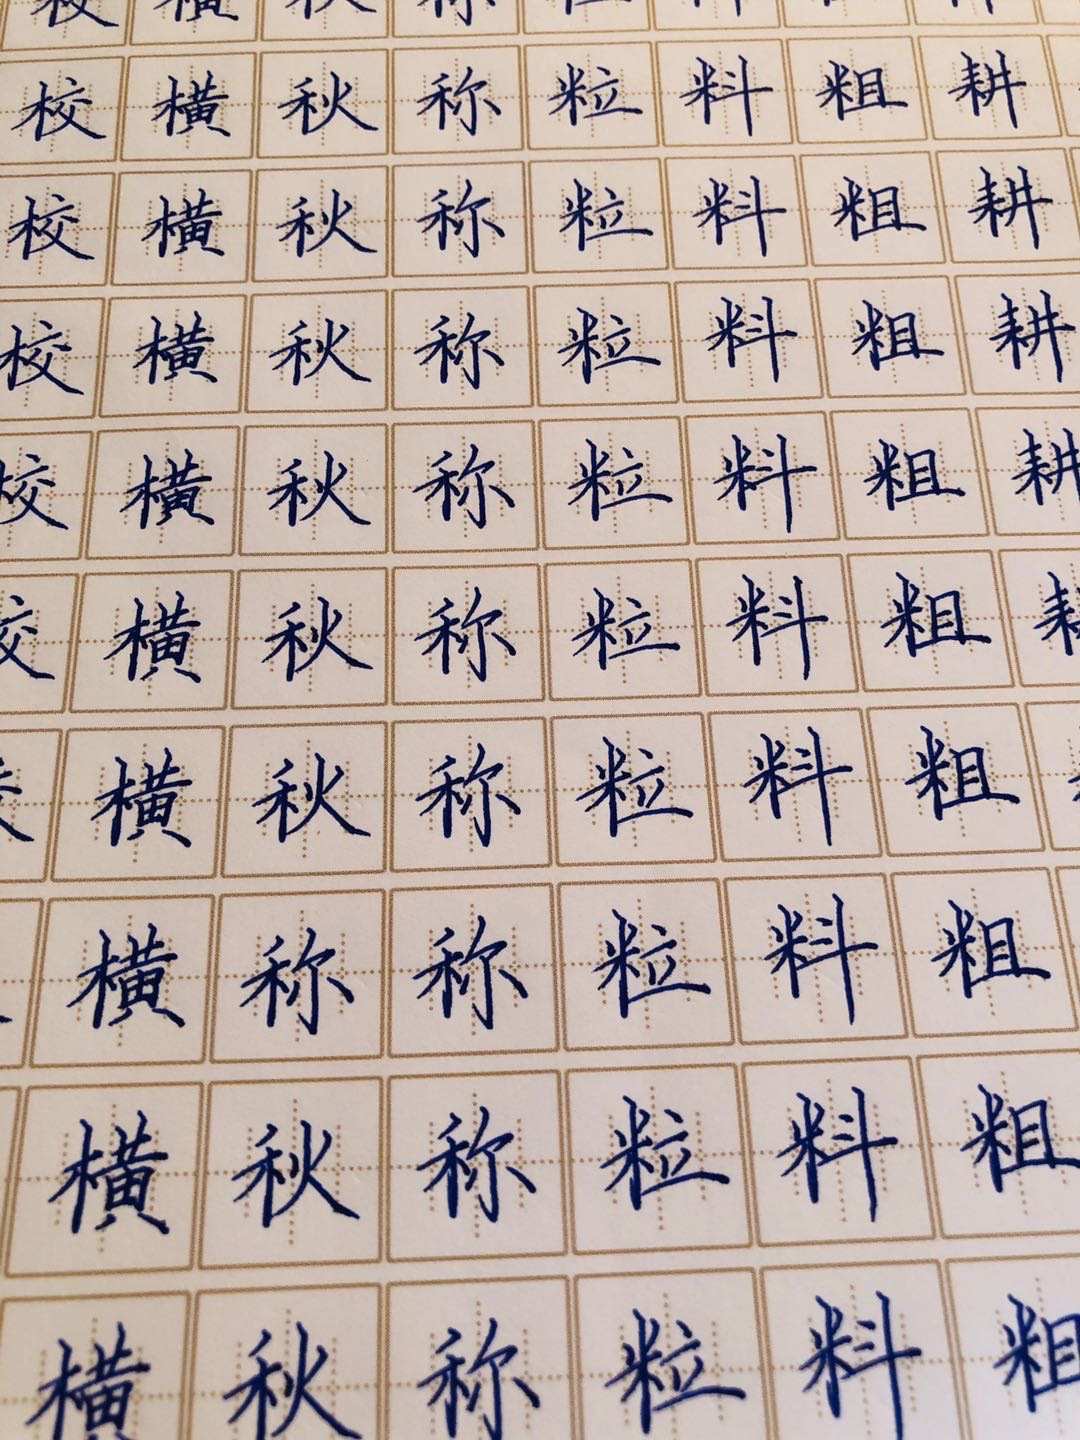 校 横 秋 称 粒 料 粗 耕
校 横 秋 称 粒 料 粗 耕
校 横 秋 称 粒 料 粗 耕
校 横 秋 称 粒 料 粗 耕
校 横 秋 称 粒 料 粗 耕
横 秋 称 粒 料 粗
横 称 称 粒 料 粗
横 秋 称 粒 料 粗
横 秋 称 粒 料 粗